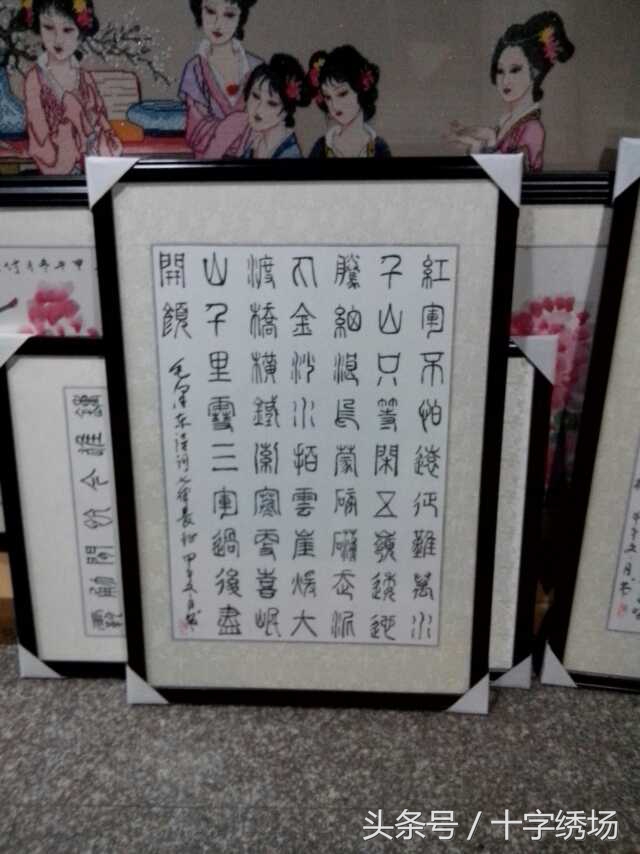 紅軍不怕遠征難萬水
千山只等閑五嶺逶迤
騰細浪烏蒙磅礴走泥
丸金沙水拍雲崖暖大
渡橋橫鐵索寒更喜岷
山千里雪三軍過後盡
開顏
毛澤東詩詞七律長征 甲午
头条号 / 十字绣场